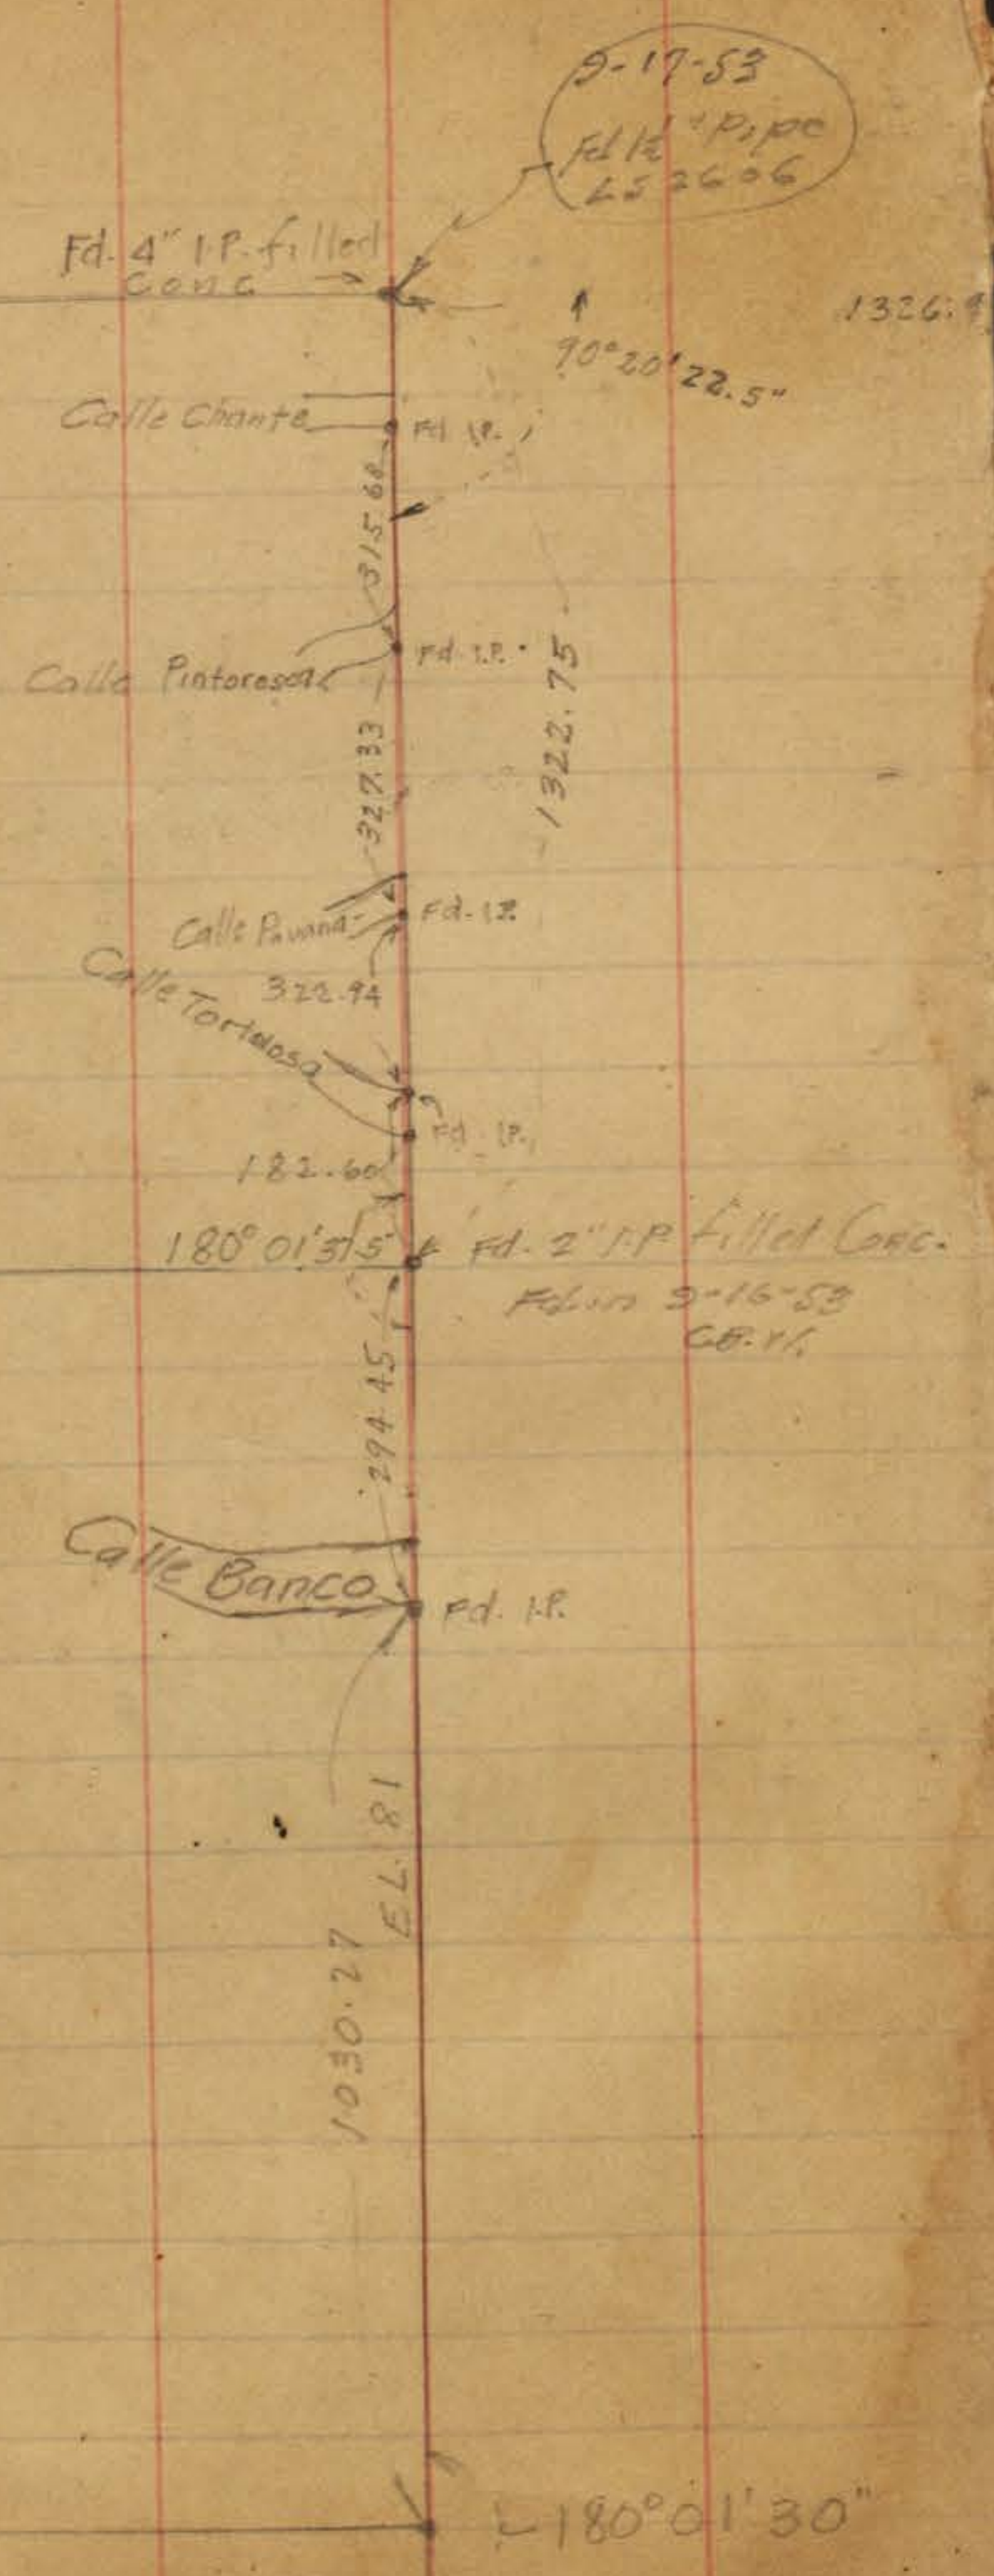 9-17-53
Fd 1½" Pipe
LS 2606
Fd. 4" I.P. filled
Conc
1326.9
90°20'22.5"
Calle Chante
Fd I.P.
315.68
Calle Pintoresca
Fd. I.P.
1322.75
327.33
Calle Pavana
Fd. I.P.
322.94
Calle Tortuosa
Fd. I.P.
182.60
180° 01' 
Fd. 2" I.P. filled Conc.
9-16-53
294.45
Calle Banco
Fd. I.P.
EL. 81
1030.27
180° 01' 30"